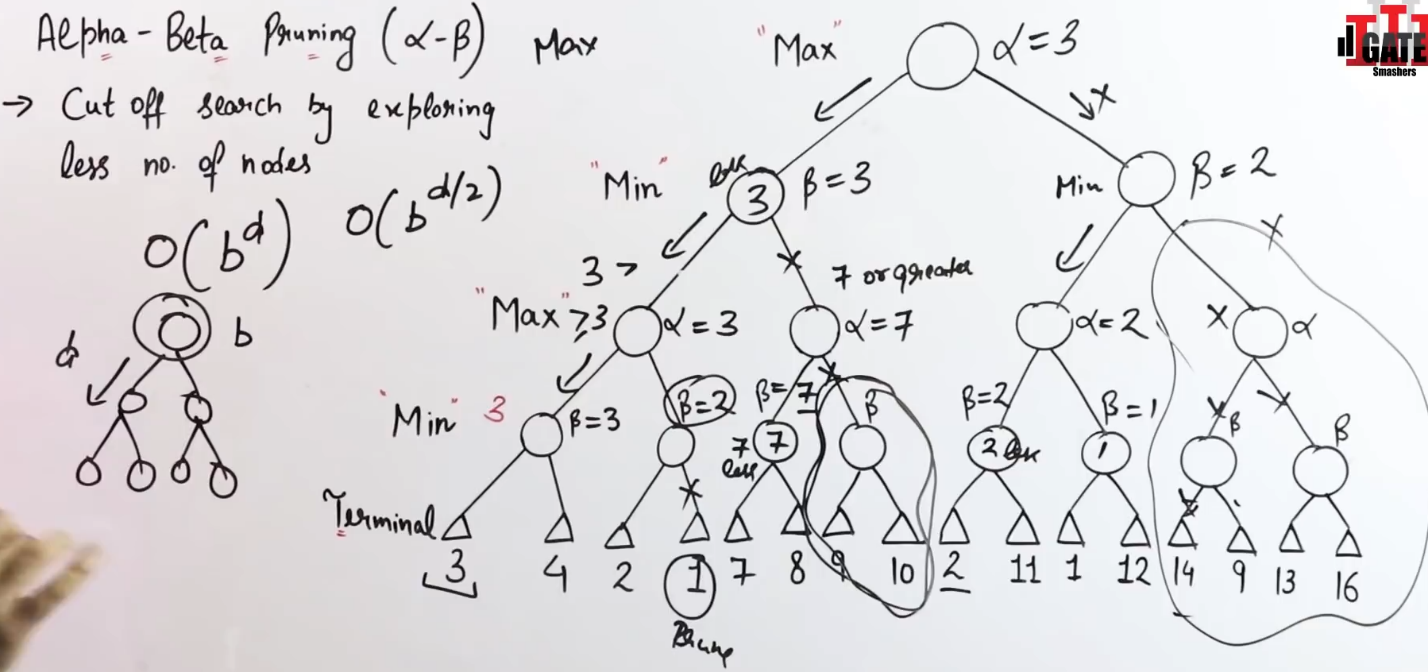 Alpha-Beta Pruning (α-β)
→ Cut off search by exploring
less no. of nodes
O(b^d) O(b^d/2)
d b
Max
"Max" α=3
x
"Min" less 3 β=3
Min β=2
3 >
x 7 or greater
x
"Max" ≥3 α=3
α=7
α=2
x α
"Min" 3 β=3
β=2
β=7 7 7 less
x β
β=2 2 less
β=1 1
x β
x β
Terminal
x
x
3 4 2 1 7 8 9 10 2 11 1 12 14 9 13 16
Prune
GATE
Smashers